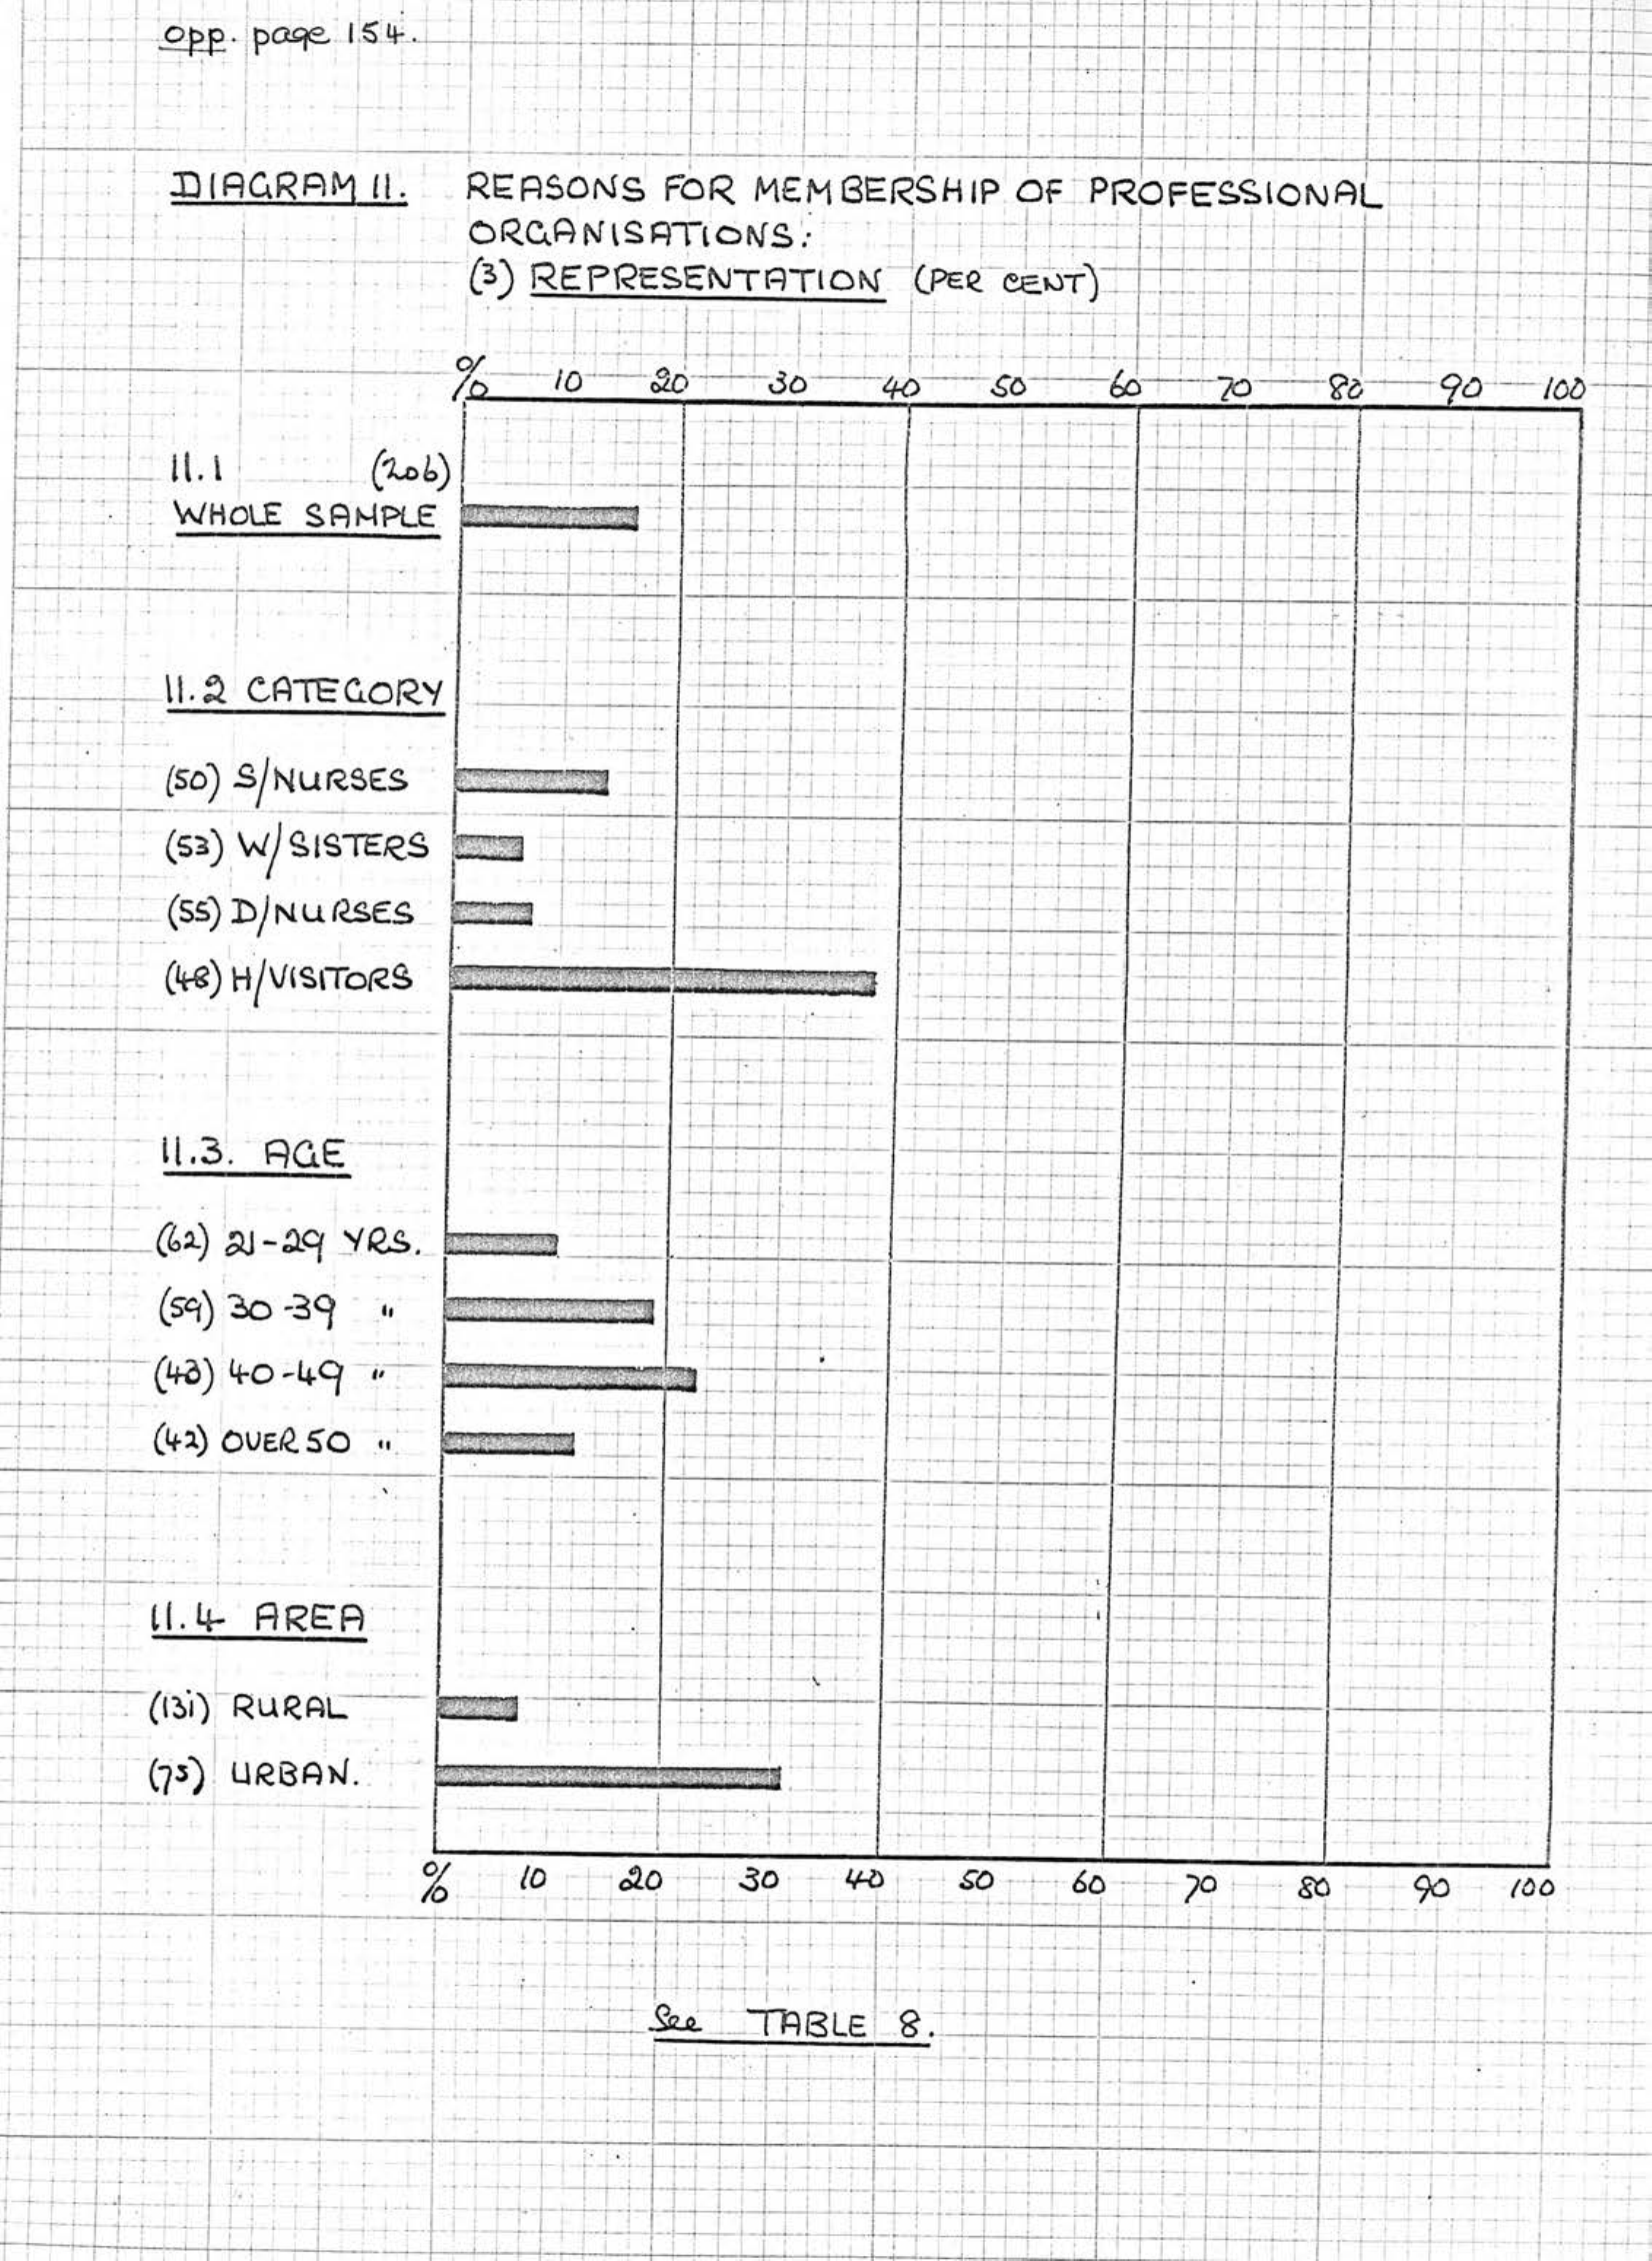 opp. page 154.
DIAGRAM 11. REASONS FOR MEMBERSHIP OF PROFESSIONAL
ORGANISATIONS:
(3) REPRESENTATION (PER CENT)
% 10 20 30 40 50 60 70 80 90 100
11.1 (206)
WHOLE SAMPLE
11.2 CATEGORY
(50) S/NURSES
(53) W/SISTERS
(55) D/NURSES
(48) H/VISITORS
11.3. AGE
(62) 21-29 YRS.
(59) 30-39 "
(43) 40-49 "
(42) OVER 50 "
11.4 AREA
(131) RURAL
(75) URBAN.
% 10 20 30 40 50 60 70 80 90 100
See TABLE 8.